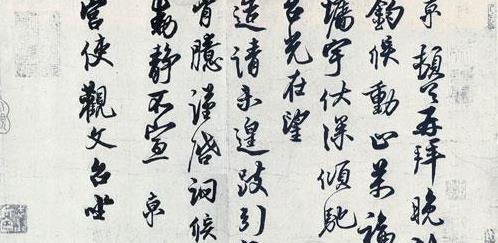 京 頓首再拜晚
鈞候動止萬福
牆宇伏深傾馳
台光在望
造請未遑跂引
胷臆謹啓詞候
動靜不宣 京
宮使觀文台坐